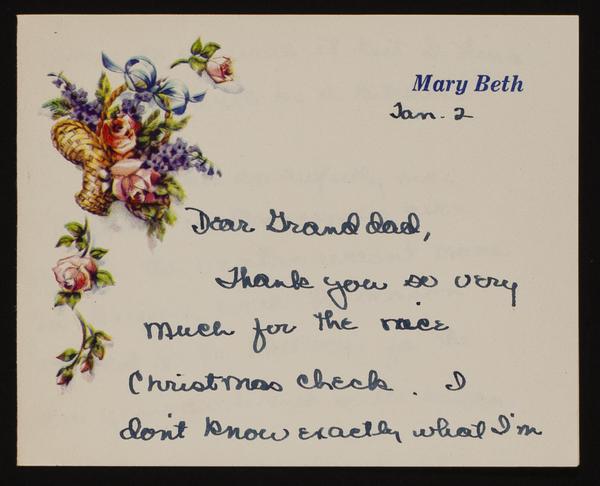 Mary Beth
Jan. 2
Dear Granddad,
Thank you so very
much for the nice
Christmas check. I
don't know exactly what I'm